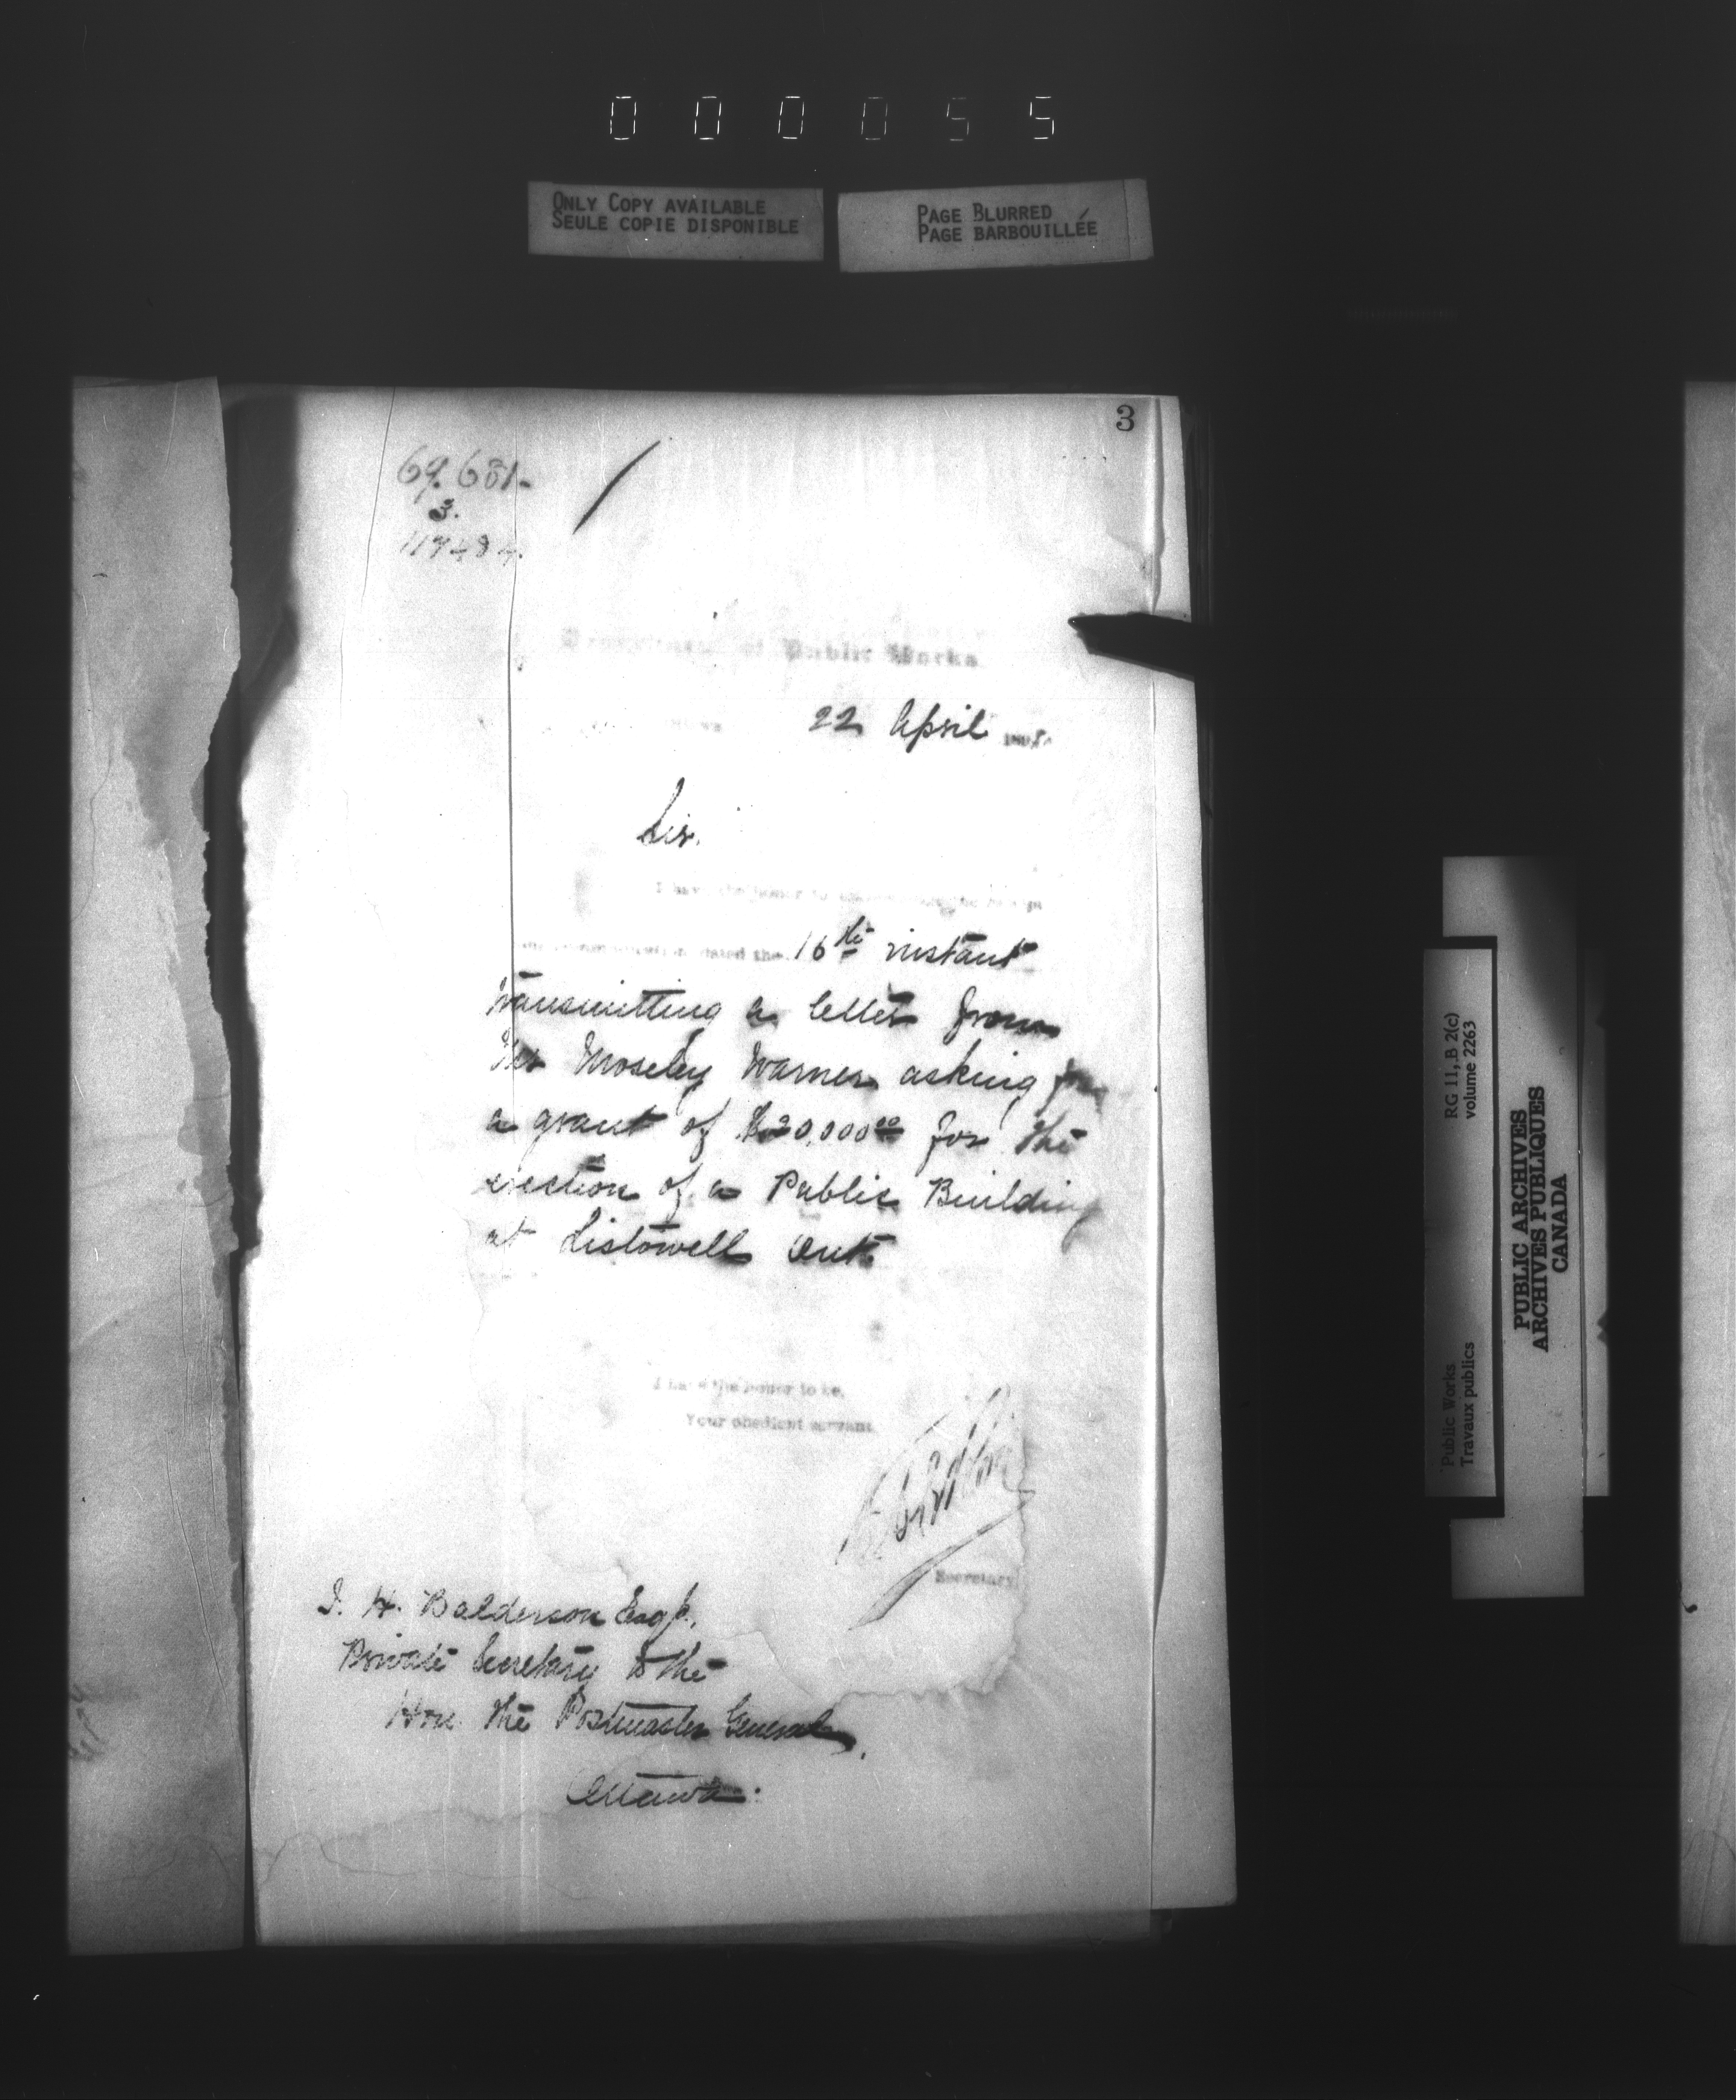 000055
ONLY COPY AVAILABLE
SEULE COPIE DISPONIBLE
PAGE BLURRED
PAGE BARBOUILLÉE
3
69.681-
3.
117484.
Department of Public Works
22 April
Sir.
I have the honor to acknowledge the receipt
communication dated the 16th instant
transmitting a letter from
Moseley Warner asking for
a grant of $20,000 00 for the
erection of a Public Building
at Listowell Ont.
I have the honor to be,
Your obedient servant
Secretary
J. H. Balderson Esqr.
Private Secretary to the
Hon. the Postmaster General,
Ottawa.
RG 11, B 2(c)
volume 2263
Public Works
Travaux publics
PUBLIC ARCHIVES
ARCHIVES PUBLIQUES
CANADA